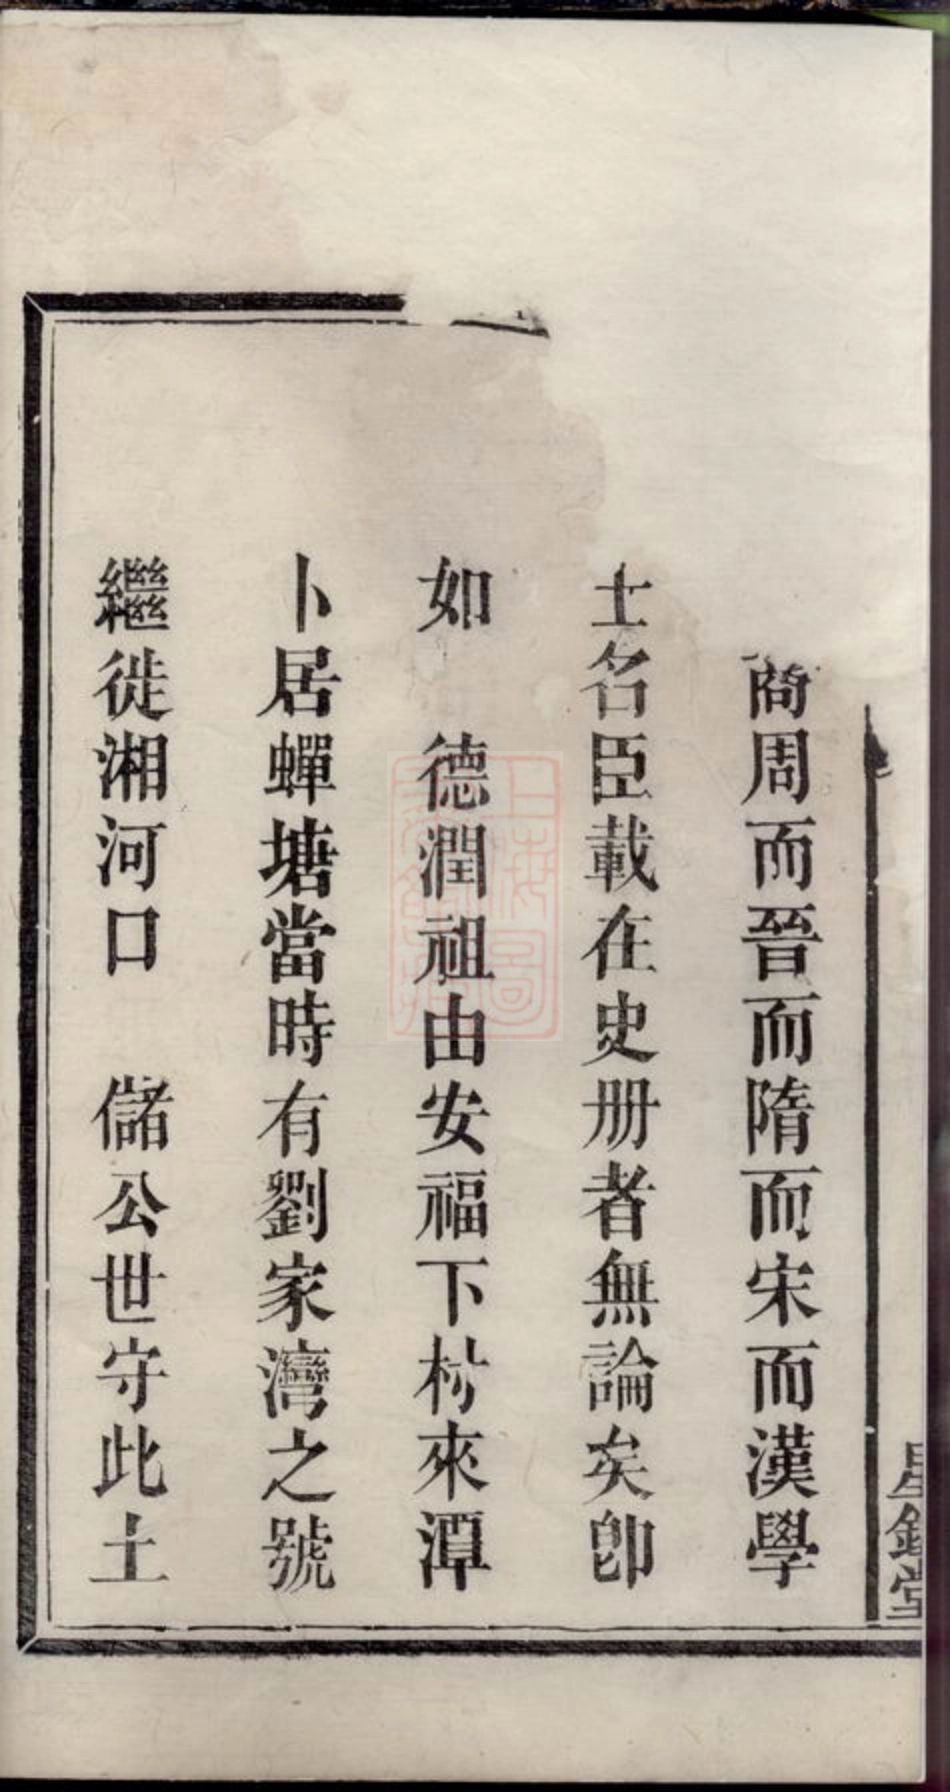 商周而晉而隋而宋而漢學
士名臣載在史册者無論矣卽
如 德潤祖由安福下村來潭
卜居蟬塘當時有劉家灣之號
繼徙湘河口 儲公世守此土